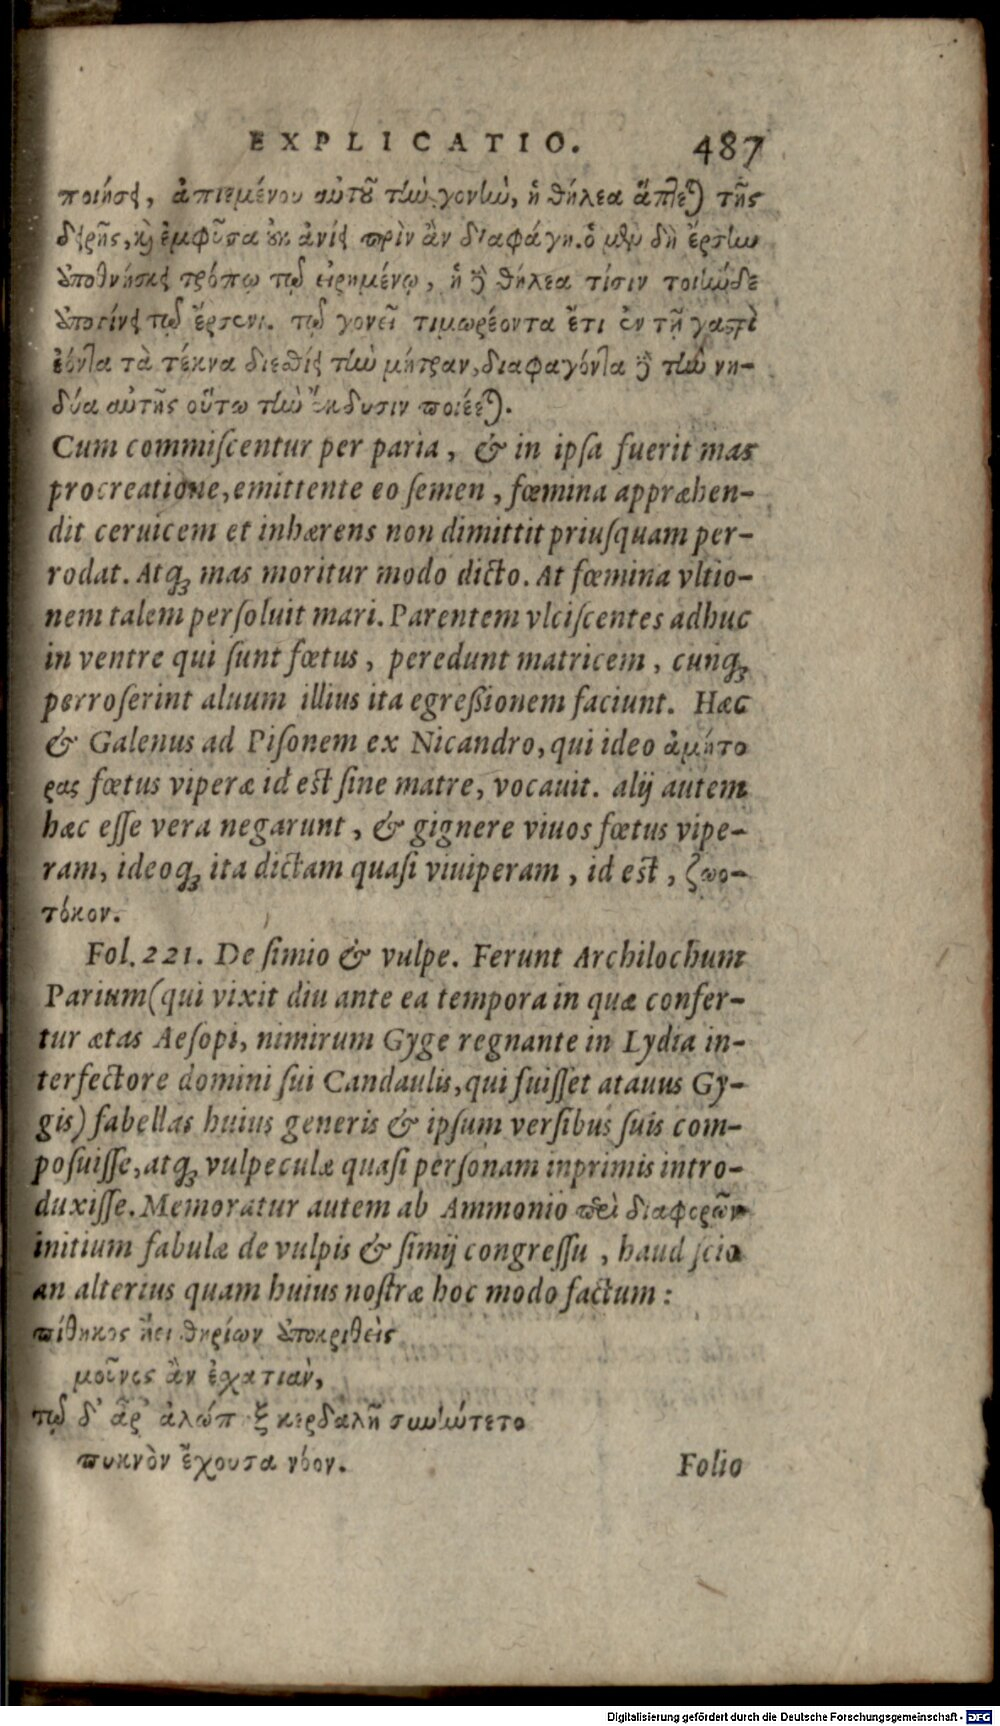 EXPLICATIO. 487
ποιήσει, ἀπιεμένου αὐτοῦ τὴν γονὴν, ἡ θήλεα ἅπτεται τῆς
δειρῆς, καὶ ἐμφῦσα οὐκ ἀνίει πρὶν ἂν διαφάγη. ὁ μὲν δὴ ἔρσην
ἀποθνήσκει τρόπῳ τῷ εἰρημένῳ, ἡ δὲ θήλεα τίσιν τοιήνδε
ἀποτίνει τῷ ἔρσενι. τῷ γονεῖ τιμωρέοντα ἔτι ἐν τῇ γαστρὶ
ἐόντα τὰ τέκνα διεσθίει τὴν μήτραν, διαφαγόντα δὲ τὴν νη-
δύα αὐτῆς οὕτω τὴν ἔκδυσιν ποιέεται.
Cum commiſcentur per paria, & in ipſa fuerit mas
procreatione, emittente eo ſemen, fœmina appræhen-
dit ceruicem et inhærens non dimittit priuſquam per-
rodat. Atq́ꝫ mas moritur modo dicto. At fœmina vltio-
nem talem perſoluit mari. Parentem vlciſcentes adhuc
in ventre qui ſunt fœtus, peredunt matricem, cunq́ꝫ
perroſerint aluum illius ita egreßionem faciunt. Hæc
& Galenus ad Piſonem ex Nicandro, qui ideo ἀμήτο
ρας fœtus viperæ id est ſine matre, vocauit. alij autem
hæc eſſe vera negarunt, & gignere viuos fœtus vipe-
ram, ideoq́ꝫ ita dictam quaſi viuiperam, id est, ζωο-
τόκον.
Fol. 221. De ſimio & vulpe. Ferunt Archilochum
Parium (qui vixit diu ante ea tempora in quæ confer-
tur ætas Aeſopi, nimirum Gyge regnante in Lydia in-
terfectore domini ſui Candaulis, qui fuiſſet atauus Gy-
gis) fabellas huius generis & ipſum verſibus ſuis com-
poſuiſſe, atq́ꝫ vulpeculæ quaſi perſonam inprimis intro-
duxiſſe. Memoratur autem ab Ammonio περὶ διαφορῶν
initium fabulæ de vulpis & ſimij congreſſu, haud ſcio
an alterius quam huius noſtræ hoc modo factum:
πίθηκος ἤει θηρίων ἀποκριθεὶς
μοῦνος ἂν ἐχατιαὺ,
τῷ δ' ἆρ' ἀλώπηξ κερδαλῆ συνήντετο
πυκνὸν ἔχουσα νόον.
Folio
Digitalisierung gefördert durch die Deutsche Forschungsgemeinschaft - DFG